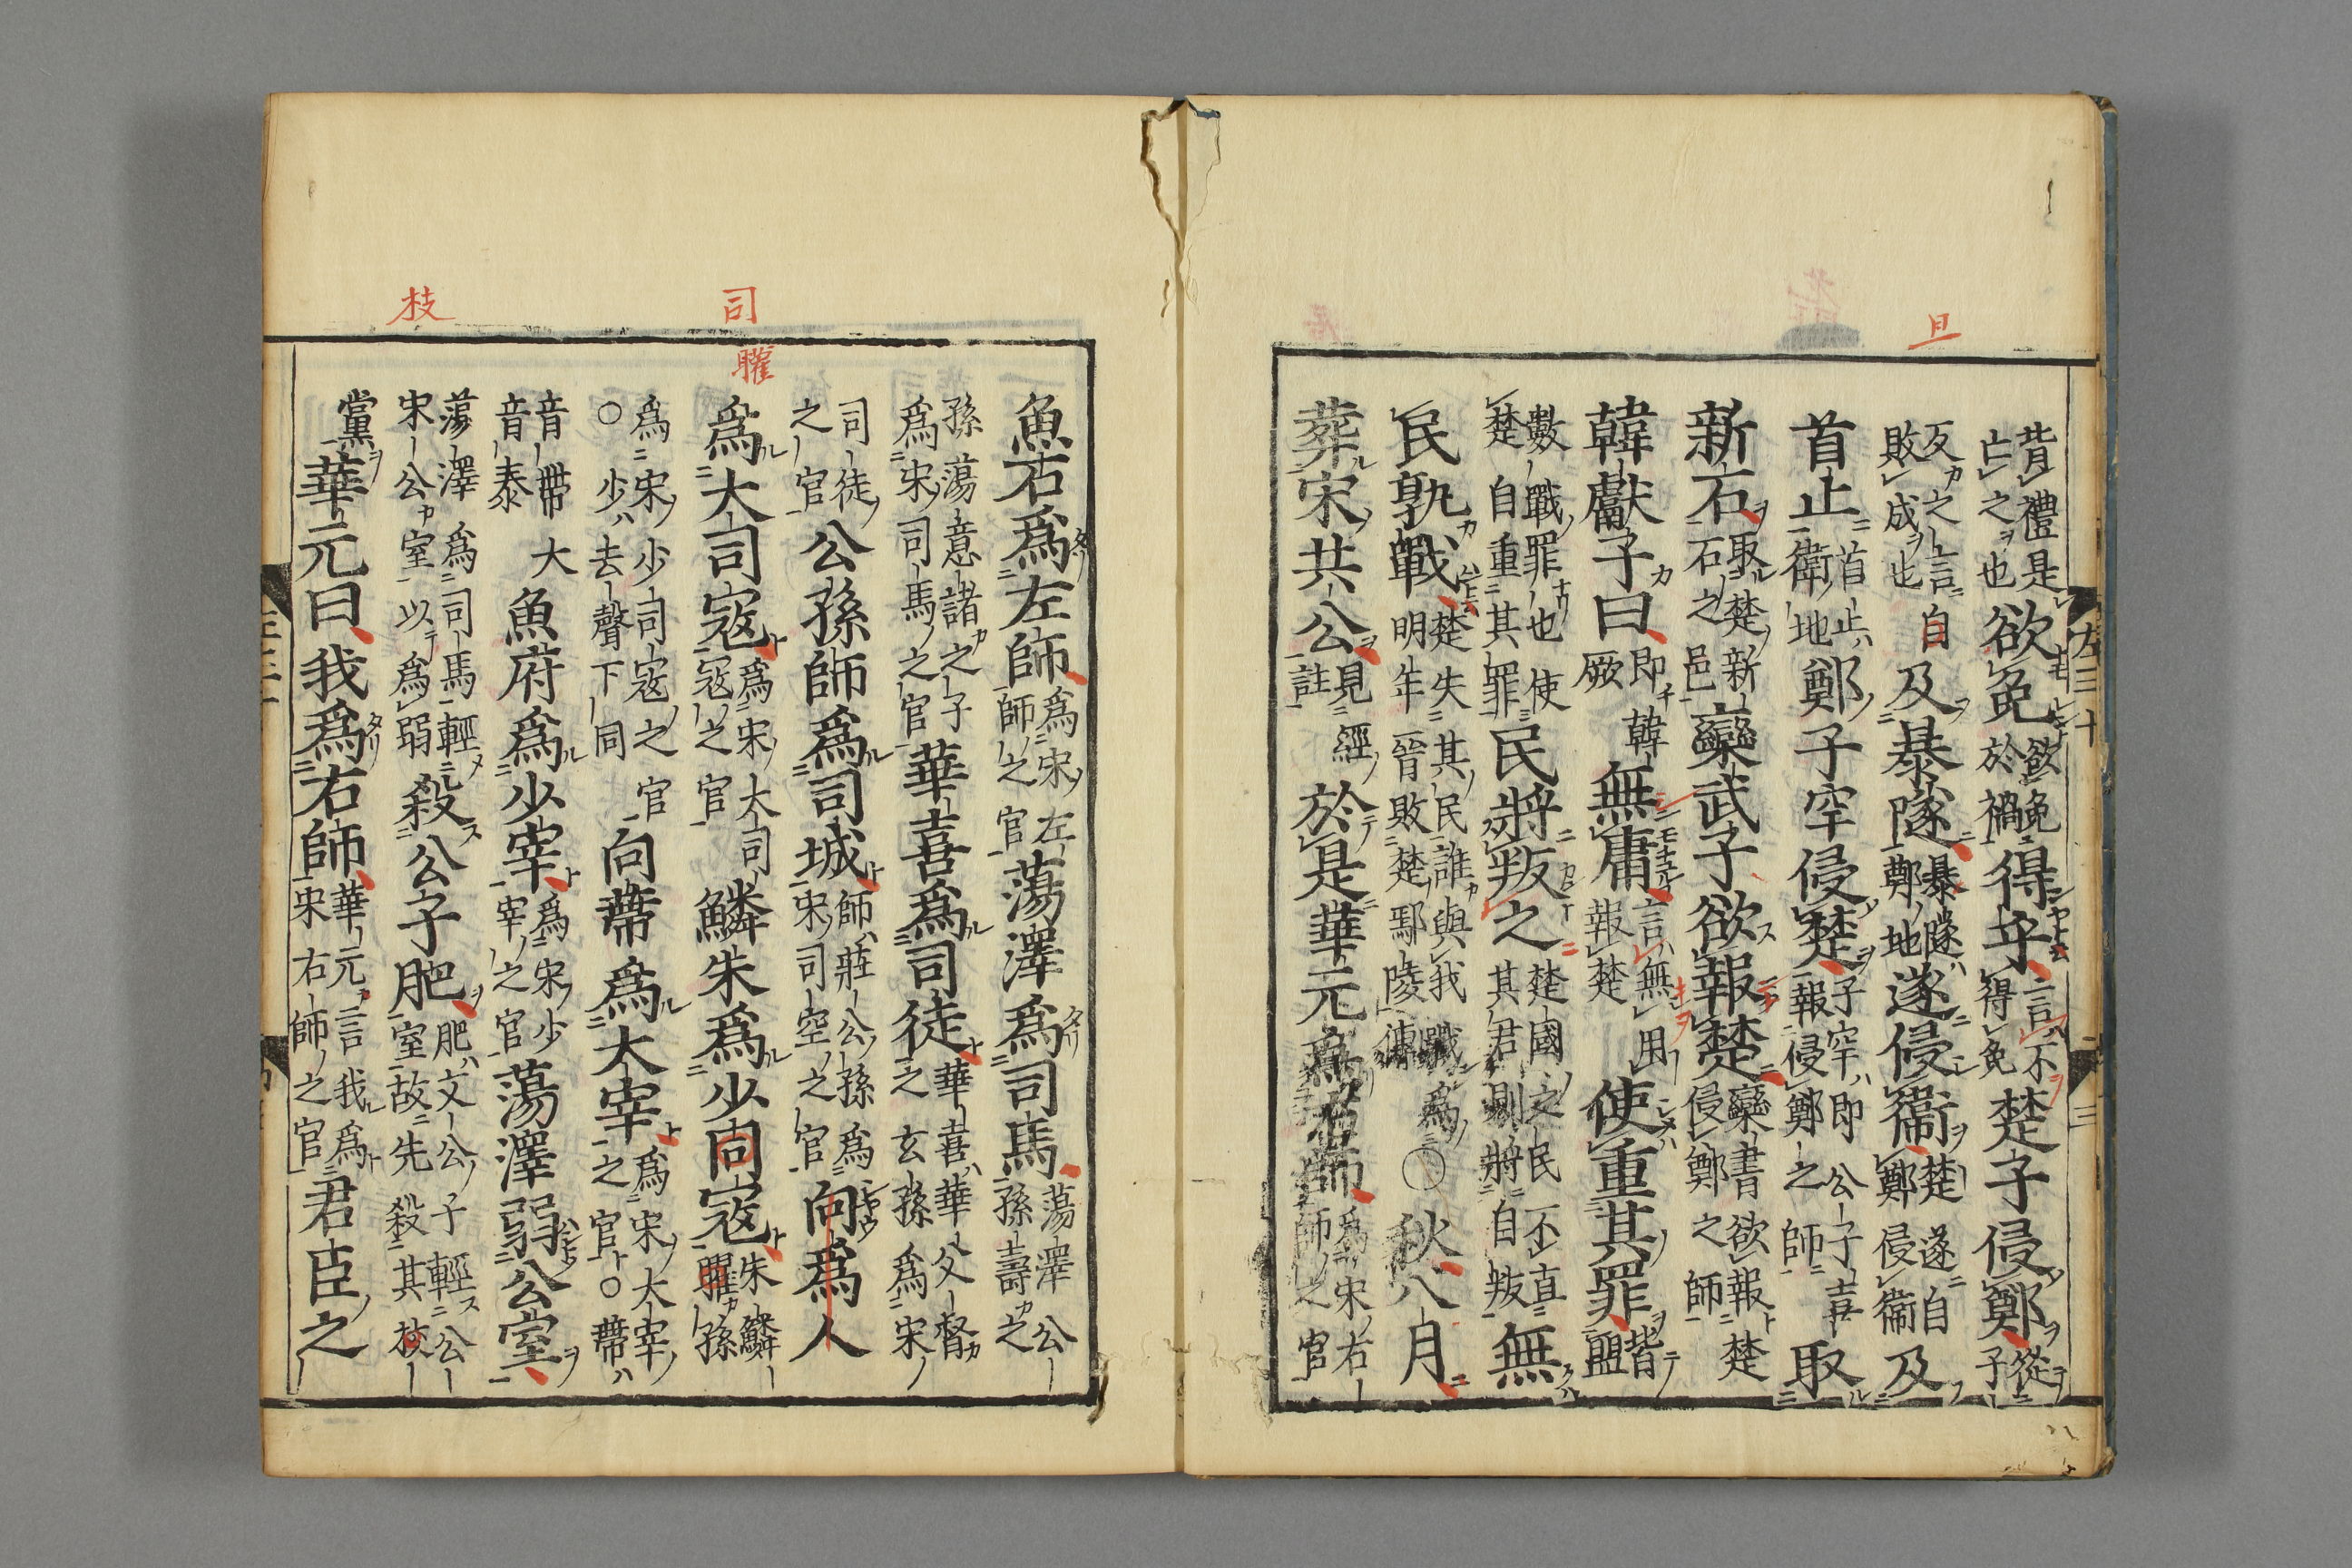 旦
背禮是
亡之也
欲免
欲免
於禍
得乎
言不
得免
楚子侵鄭
從
子
反之言
敗成也
自
及暴隧
暴隧
鄭地
遂侵衞
楚遂自
鄭侵衞
及
首止
首止
衛地
鄭子罕侵楚
子罕即公子喜
報侵鄭之師
取
新石
取楚新
石之邑
欒武子欲報楚
欒書欲報楚
侵鄭之師
韓獻子曰
即韓
厥
無庸
言無用
報楚
使重其罪
皆
盟
數戰罪也使
楚自重其罪
民將叛之
楚國之民不直
其君則將自叛
無
民孰戰
楚失其民誰與我戰
明年晉敗楚鄢陵傳
爲
○
秋八月
葬宋共公
見經
註
於是華元爲右師
爲宋右
師之官
司
矔
枝
魚石爲左師
爲宋左
師之官
蕩澤爲司馬
蕩澤公
孫壽之
孫蕩意諸之子
爲宋司馬之官
華喜爲司徒
華喜華父督
之玄孫爲宋
司徒
之官
公孫師爲司城
師莊公孫爲
宋司空之官
向爲人
爲大司寇
爲宋大司
寇之官
鱗朱爲少向寇
朱鱗
矔孫
爲宋少司寇之官
○少去聲下同
向帶爲大宰
爲宋大宰
之官○帶
音帶大
音泰
魚府爲少宰
爲宋少
宰之官
蕩澤弱公室
蕩澤爲司馬輕
宋公室以爲弱
殺公子肥
肥文公子輕公
室故先殺其枝
黨
華元曰我爲右師
華元言我爲
宋右師之官
君臣之